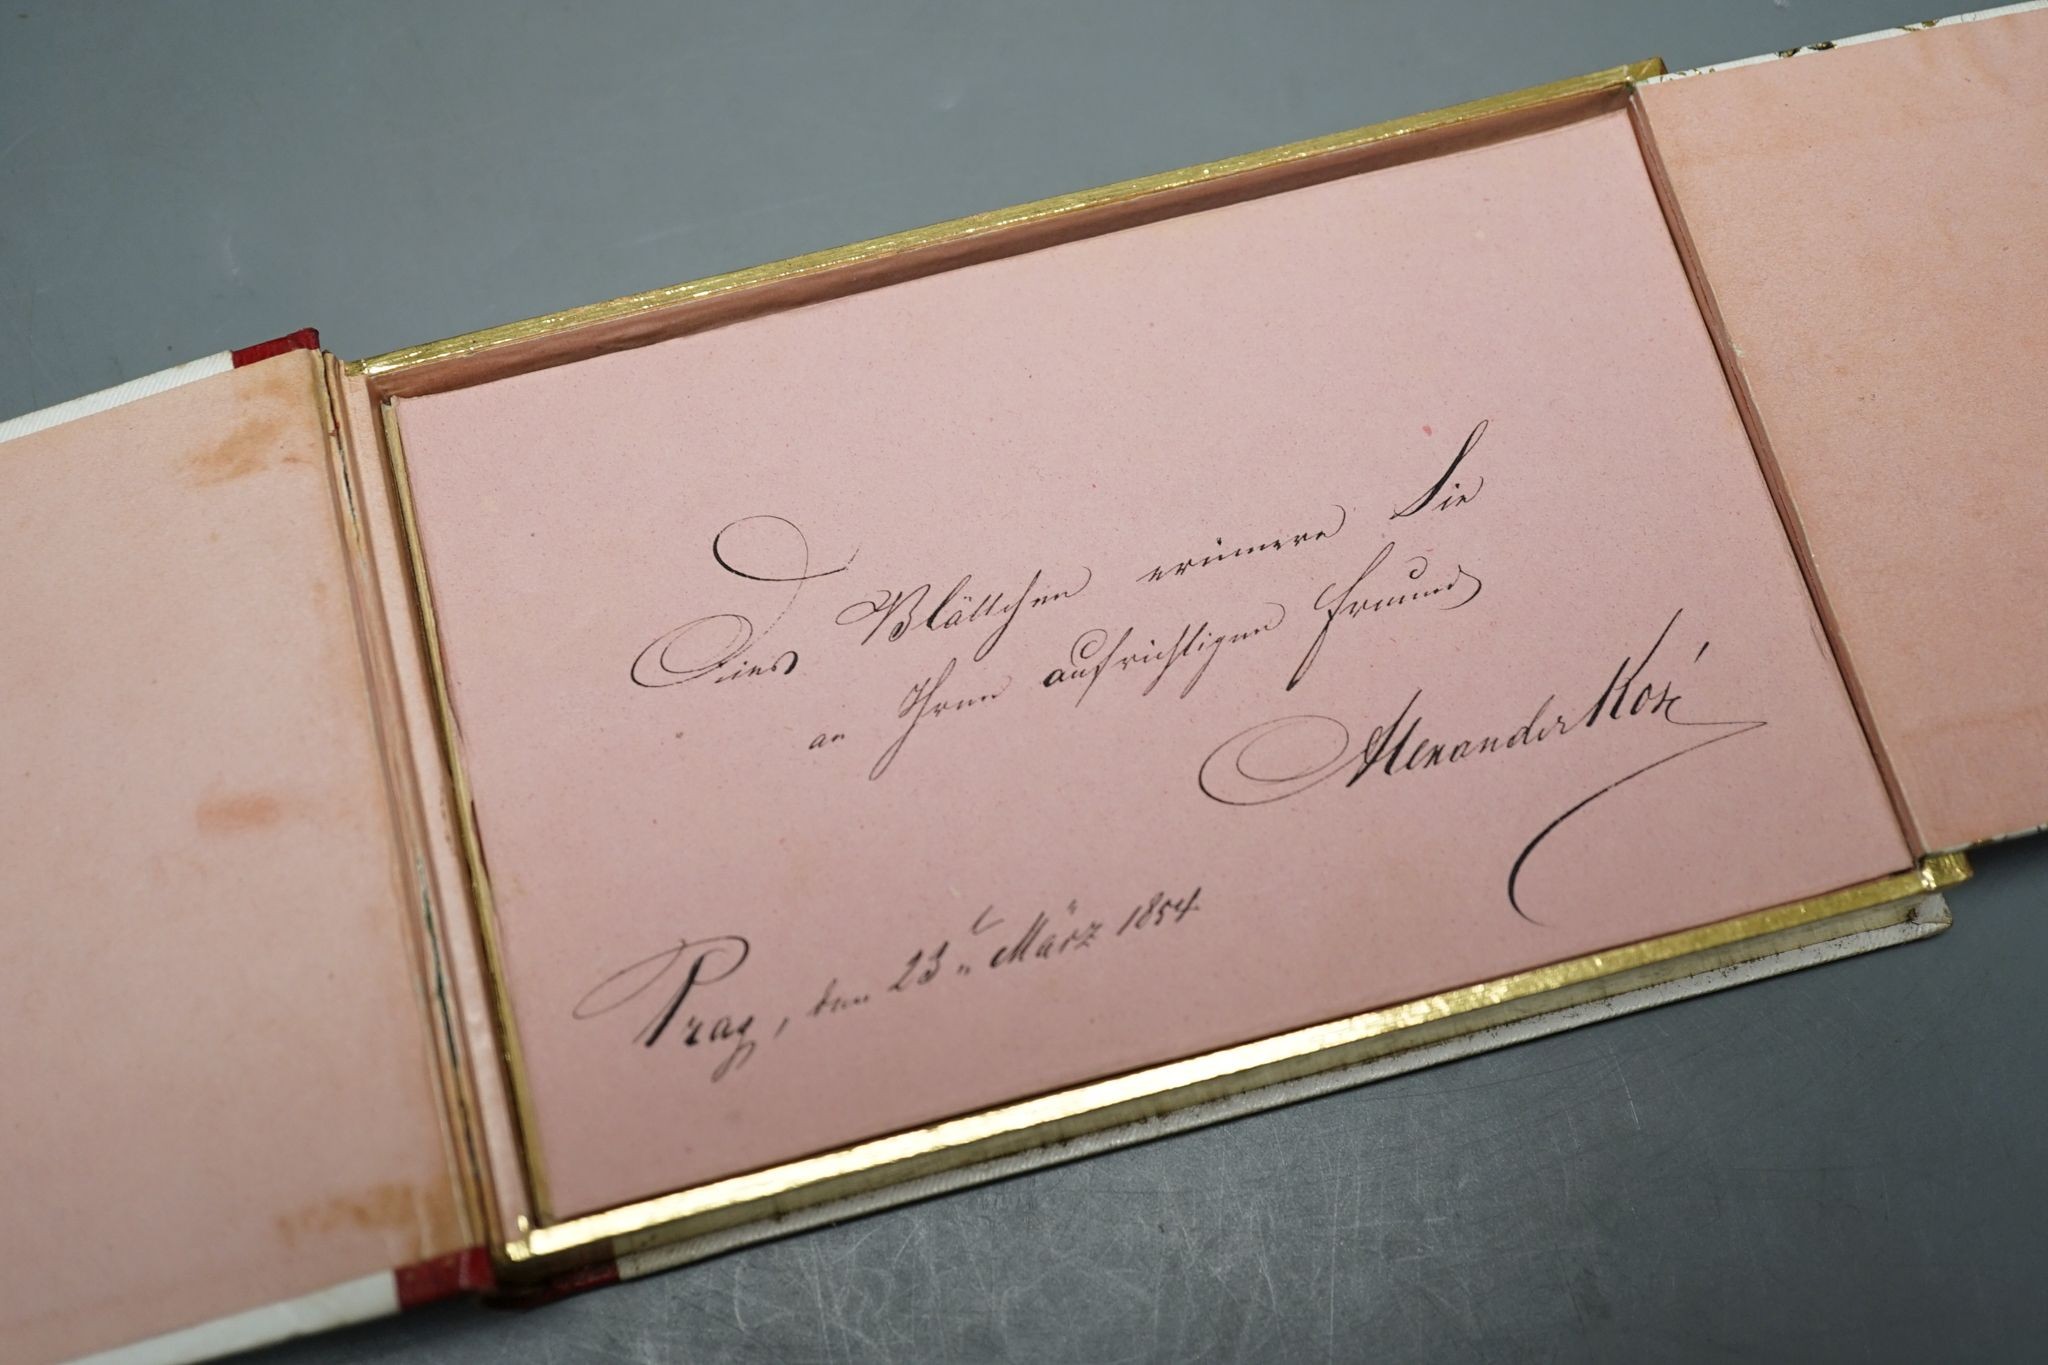 Dies Blättchen erinnere Sie
an Ihren aufrichtigen Freund
Alexander Rosé
Prag, den 23t. März 1854.